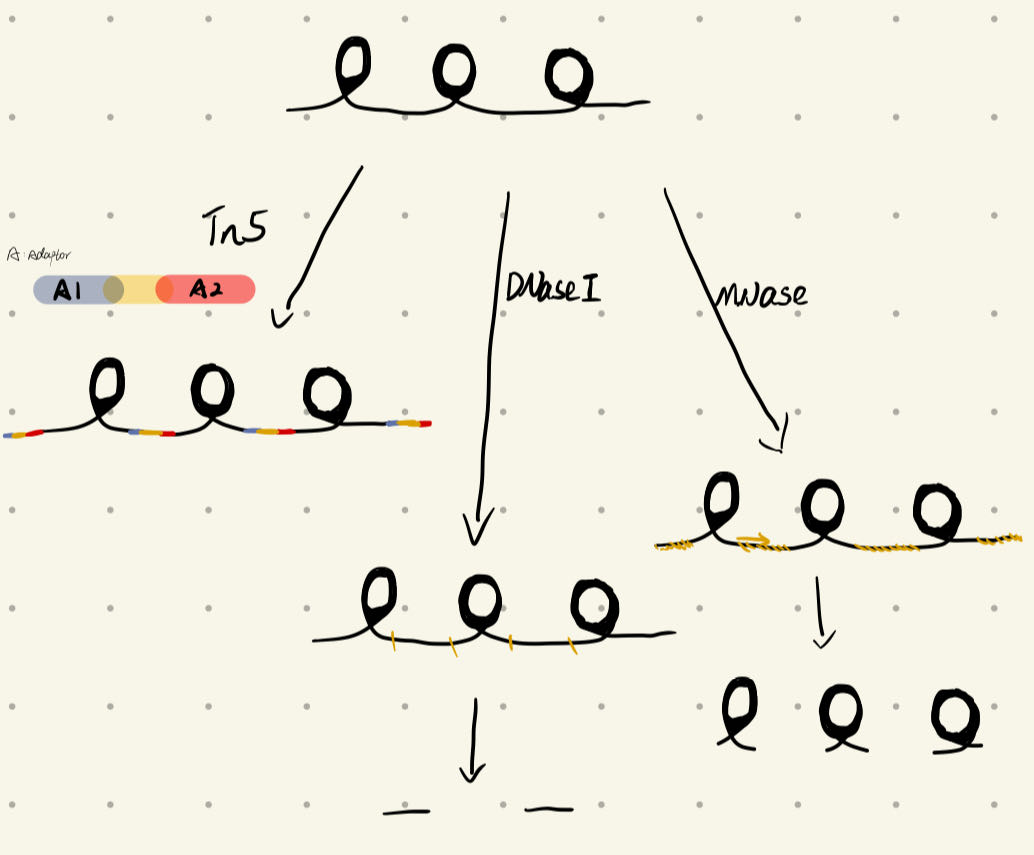 Tn5
A: Adaptor
A1 A2
DNase I
MNase